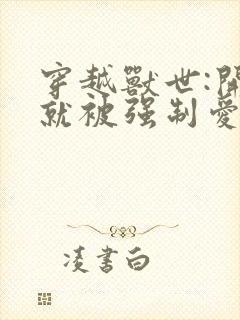 穿越獸世:開
就被强制愛
凌書白